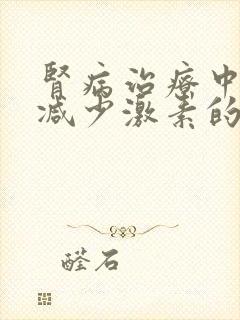 肾病治疗中
减少激素的
醛石